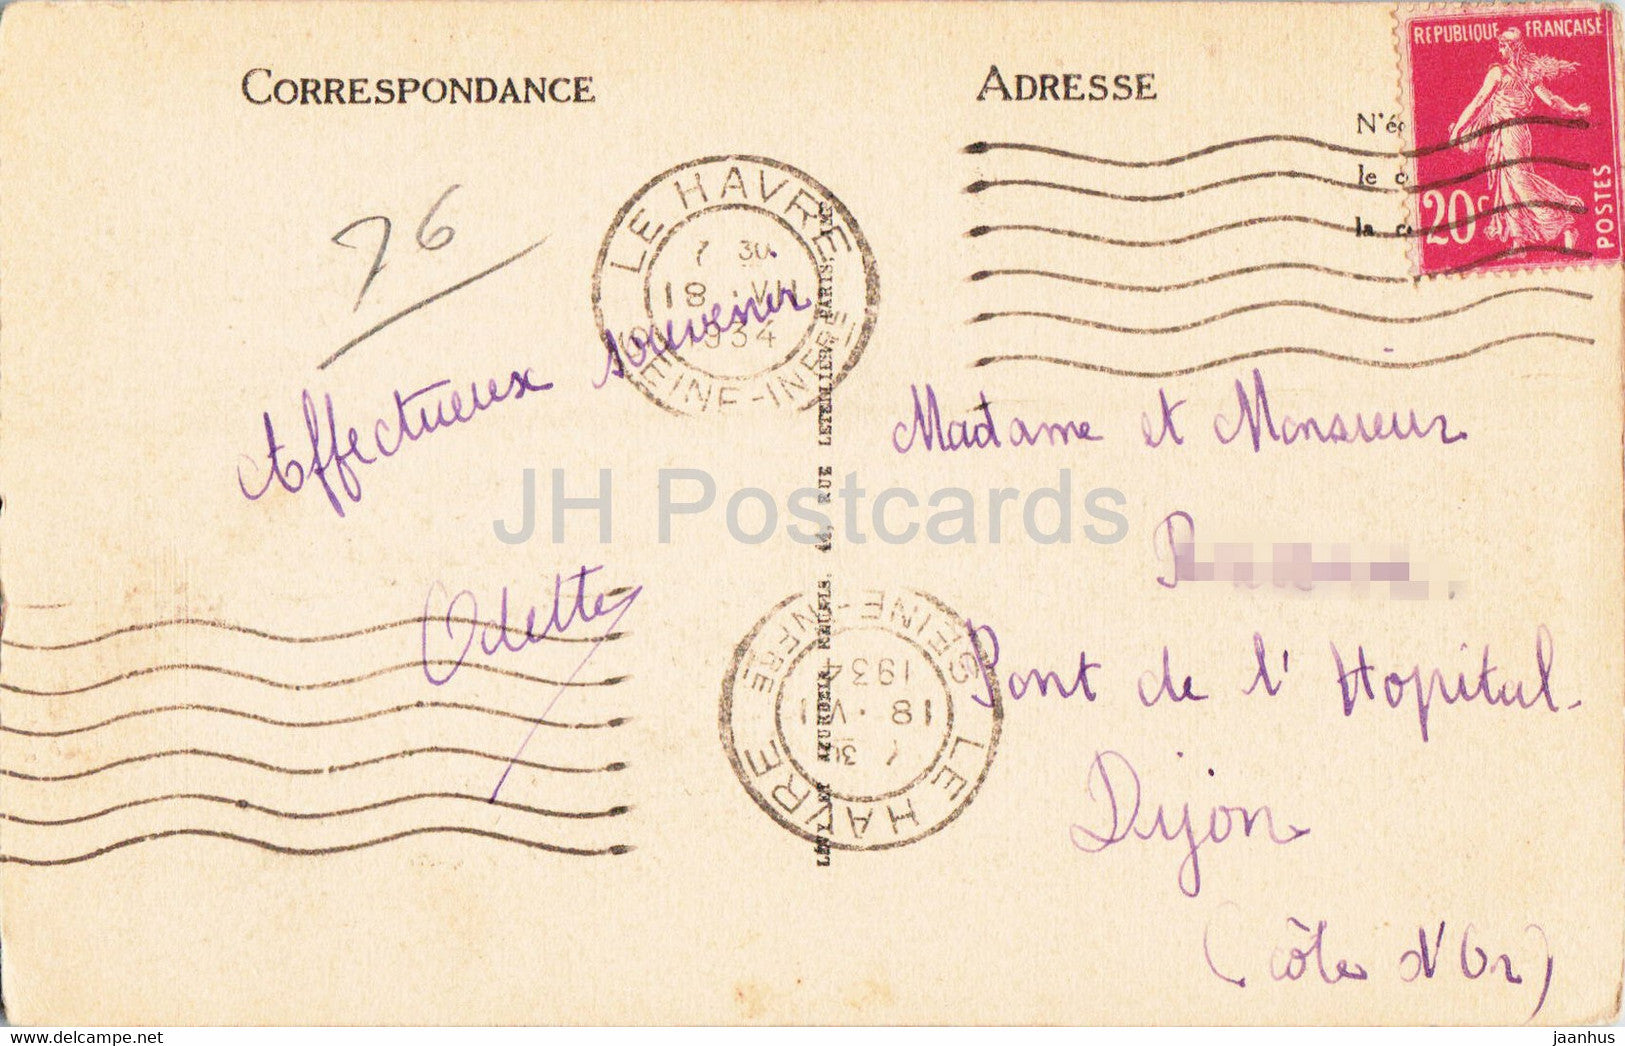 CORRESPONDANCE
ADRESSE
RÉPUBLIQUE FRANÇAISE
20c
POSTES
N'éc
le c
la c
76
LE HAVRE
7 30
18 VII
1934
SEINE-INFRE
Affectueux souvenir
Odette
Madame et Monsieur
Pont de l'Hopital.
Dijon
(côte d'Or)
LE HAVRE
7 30
18 VII
1934
SEINE-INFRE
LÉVY ET NEURDEIN RÉUNIS. 44, RUE LETELLIER, PARIS.
JH Postcards
jaanhus